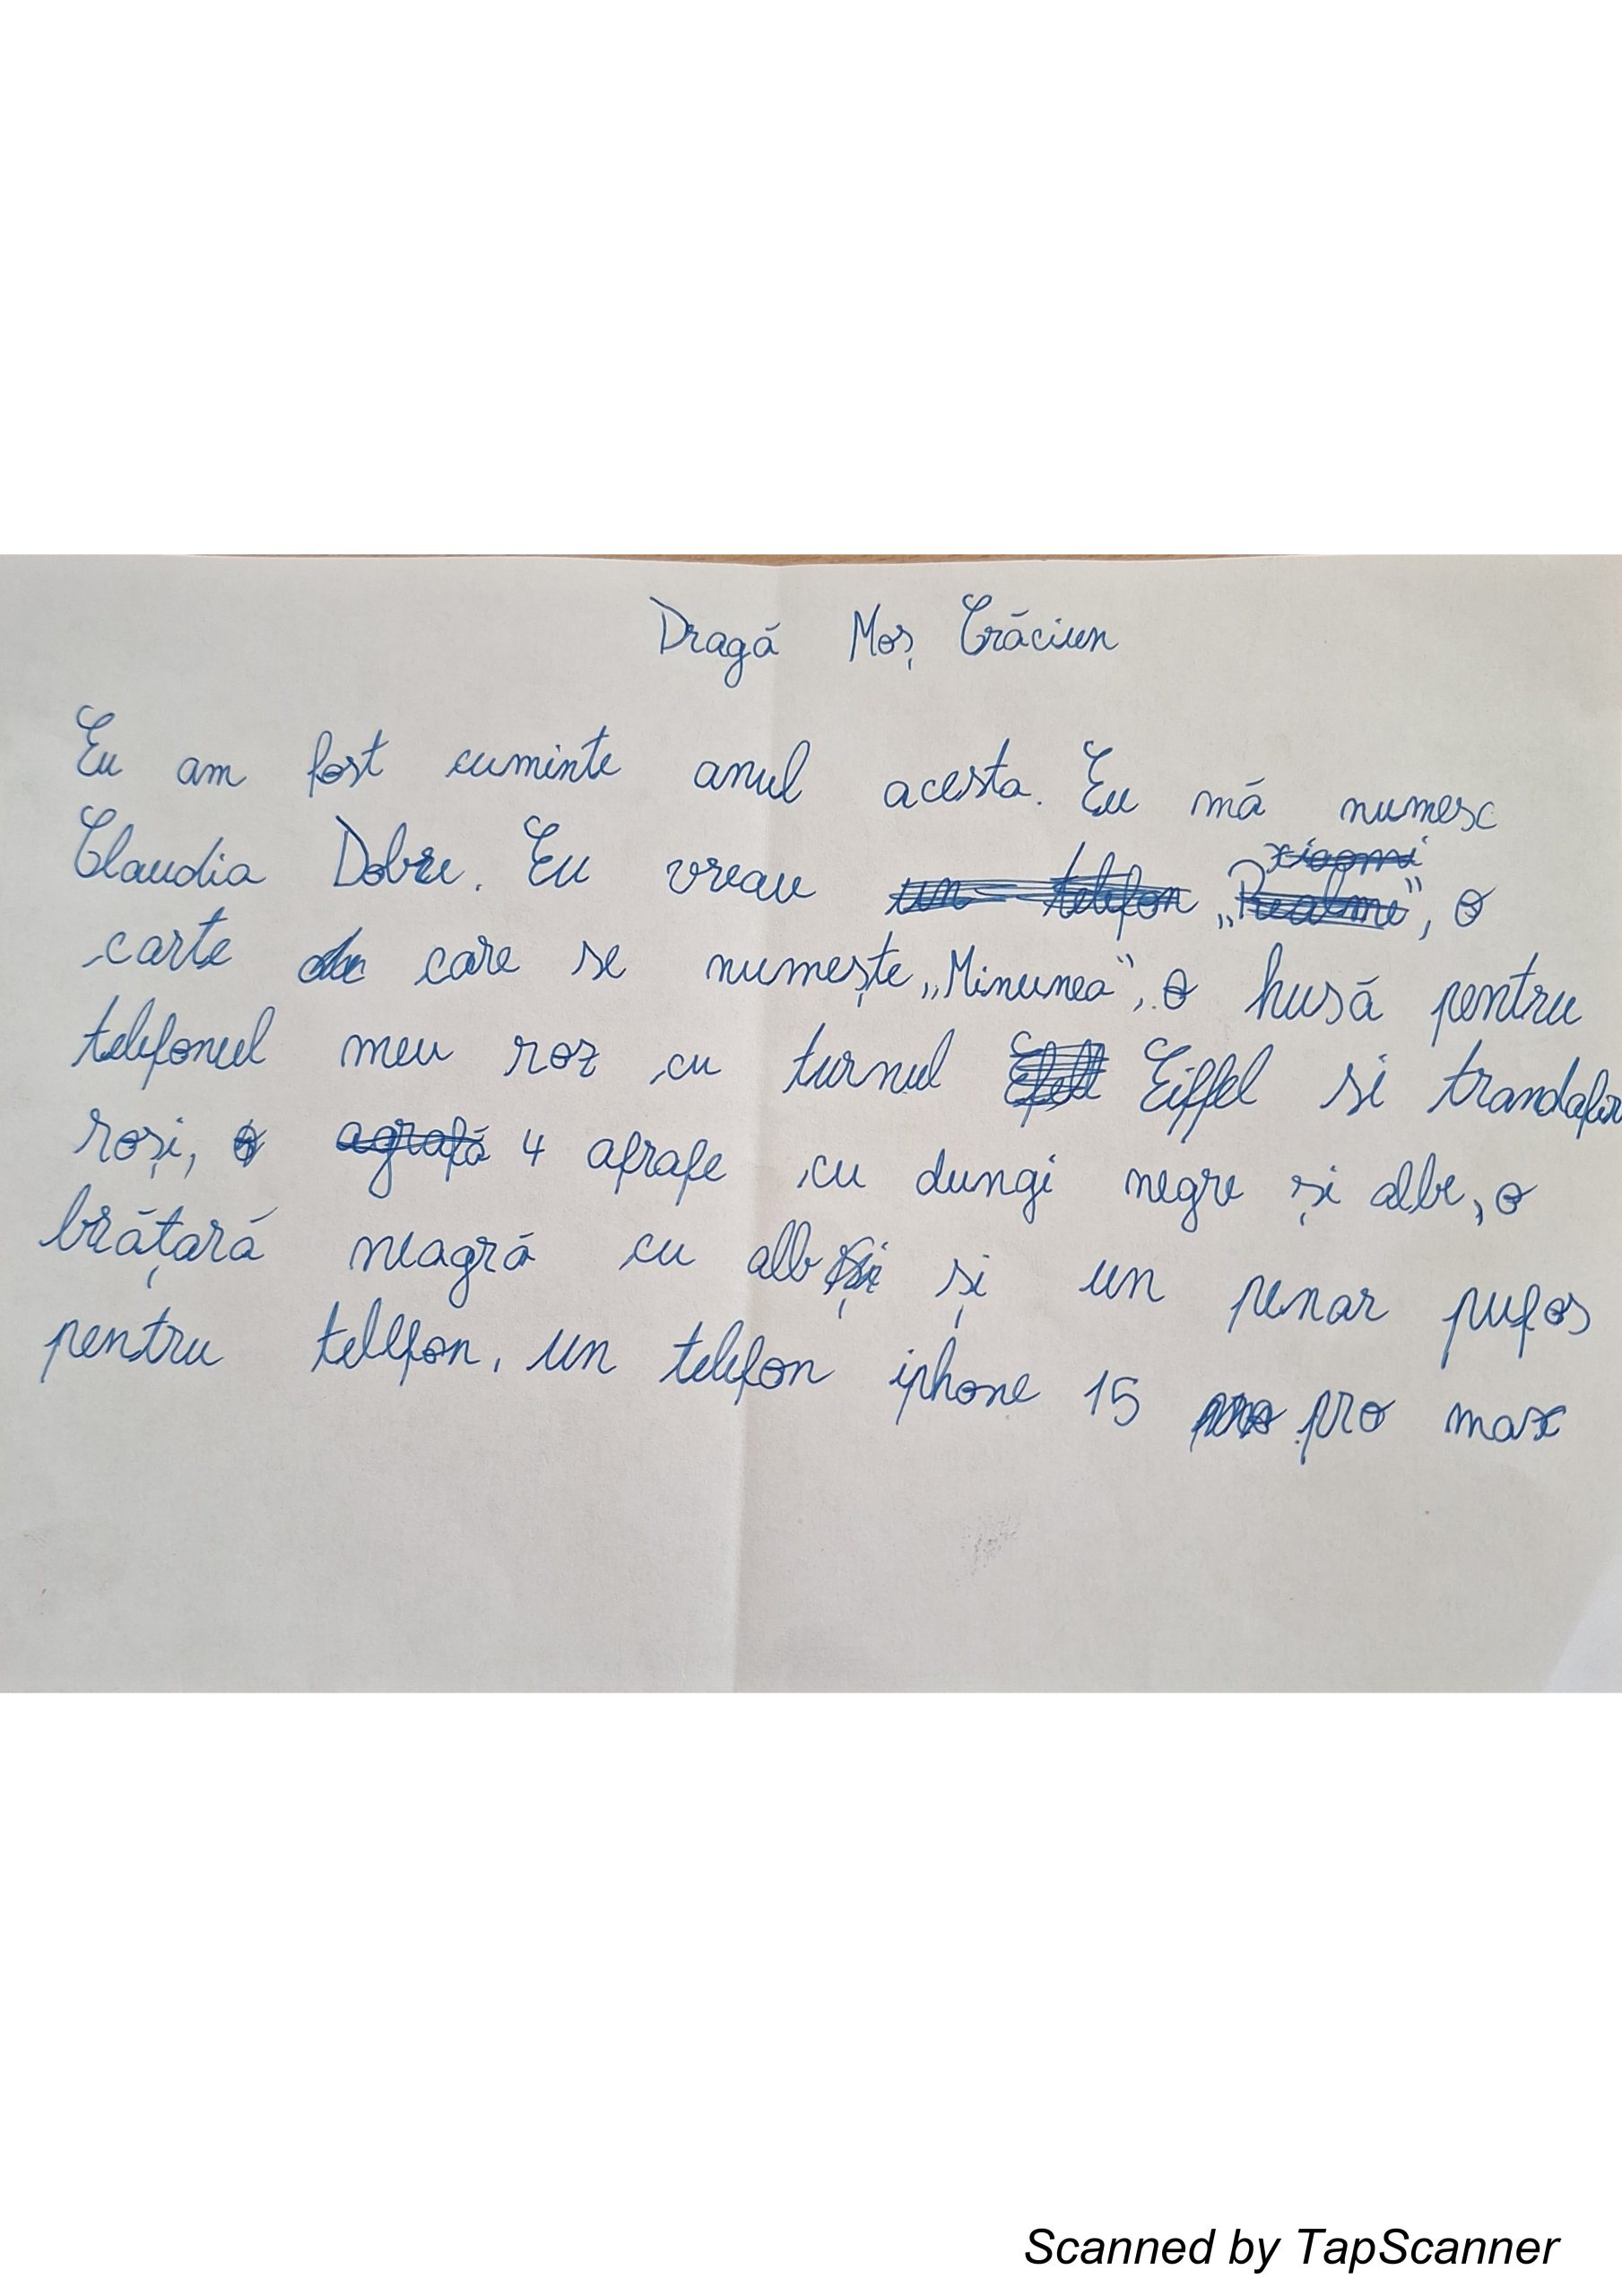 Dragă Moș Crăciun
Eu am fost cuminte anul acesta. Eu mă numesc
Claudia Dobre. Eu vreau un telefon „Realme”, o
xiaomi
carte care se numește „Minunea”, o husă pentru
telefonul meu roz cu turnul Eiffel si trandafir
roși, o agrafă 4 afrafe cu dungi negre și albe, o
brățară neagră cu alb și și un penar pufos
pentru telefon, un telefon iphone 15 pro pro max
Scanned by TapScanner